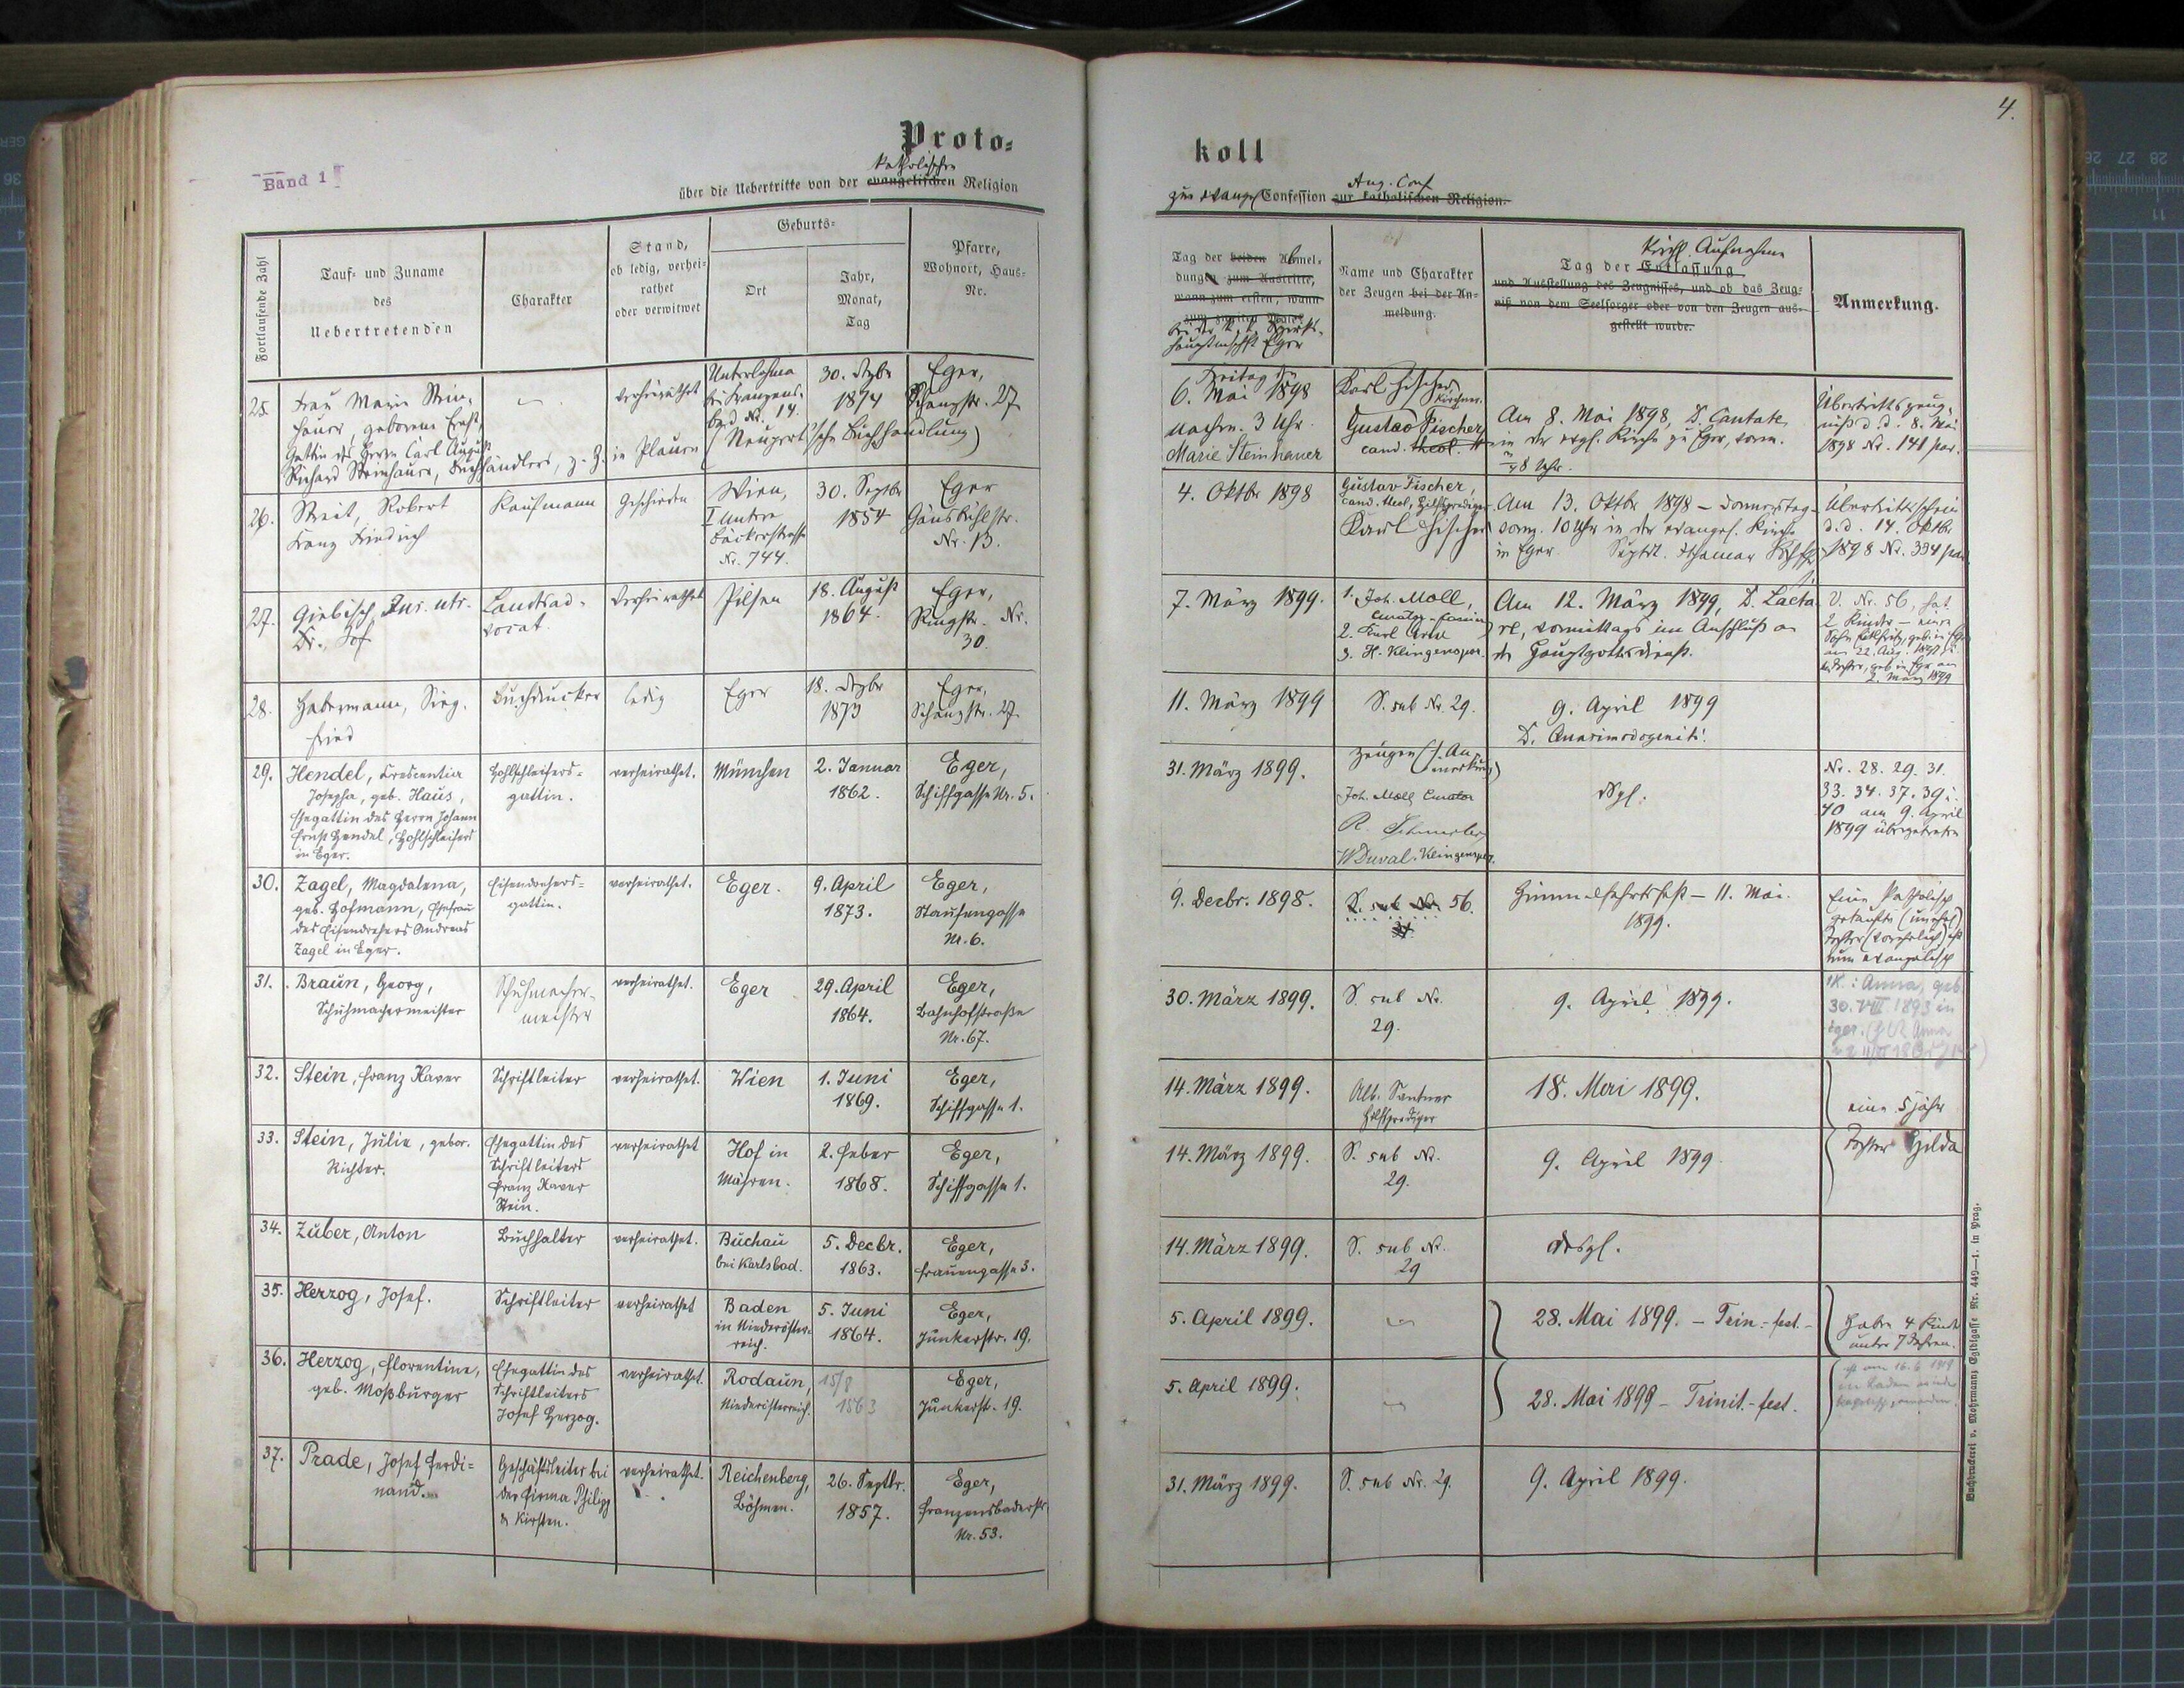 4.
Proto=
koll
Band 1
katholischen
über die Uebertritte von der evangelischen Religion
Aug. Conf
zur evangel Confession zur katholischen Religion.
Fortlaufende Zahl
Tauf- und Zuname
des
Uebertretenden
Charakter
Stand,
ob ledig, verhei-
rathet
oder verwitwet
Geburts-
Ort
Jahr,
Monat,
Tag
Pfarre,
Wohnort, Haus-
Nr.
Tag der beiden Abmel-
dungen zum Austritte,
wann zum ersten, wann
zum zweiten Male
bei der k. k. Bezirks-
hauptmschft Eger
Name und Charakter
der Zeugen bei der An-
meldung.
kirchl. Aufnahme
Tag der Entlassung
und Ausstellung des Zeugnisses, und ob das Zeug-
niß von dem Seelsorger oder von den Zeugen aus-
gestellt wurde.
Anmerkung.
25.
Frau Marie Stein-
hauer, geborene Ernst,
Gattin des Herrn Carl August
Richard Steinhauer, Buchhändlers, z. Z. in Plauen (Neupert'sche Buchhandlung)
verheirathet
Unterlohma
bei Franzens-
bad Nr. 14.
30. Dezbr
1874
Eger,
Schanzstr. 27
Freitag d.
6. Mai 1898
nachm. 3 Uhr.
Marie Steinhauer
Karl Fischer
Kirchner.
Gustav Fischer
cand. theol.
Am 8. Mai 1898, D. Cantate
in der evgl. Kirche zu Eger, vorm.
Übertrittszeug-
niß d. d. 8. Mai
1898 Nr. 141 par.
26.
Streit, Robert
Franz Friedrich
Kaufmann
Geschieden
Wien,
I Untere
Bäckerstrasse
Nr. 744.
30. Septbr
1854
Eger
Gänsbühlstr.
Nr. 13.
4. Oktbr 1898
Gustav Fischer,
cand. theol, Hilfsprediger
Karl Fischer
Am 13. Oktbr 1898 – Donnerstag –
vorm. 10 Uhr in der evangel. Kirche
in Eger
Übertrittsschein
d. d. 14. Oktbr
1898 Nr. 334 par
27.
Giebisch, Jur. utr.
Dr., Jos
Landesad-
vocat.
Verheirathet
Pilsen
18. August
1864.
Eger,
Ringstr. Nr.
30.
7. März 1899.
1. Joh. Moll,
2. Karl
3. H. Klingenspor.
Am 12. März 1899, D. Laeta-
re, vormittags im Anschluß an
den Hauptgottesdienst.
V. Nr. 56, hat
2 Kinder – einen
am 22. Aug. 1897 u.
Tochter, geb. in Eger am
2. März 1899
28.
Habermann, Sieg-
fried
Buchdrucker
ledig
Eger
18. Dezbr
1873
Eger,
Schanzstr. 27.
11. März 1899
S. sub Nr. 29.
9. April 1899
D. Quasimodogeniti.
29.
Hendel, Krescentia
Josepha, geb. Haus,
Ehegattin des Herrn Johann
Ernst Hendel, Hohlschleifers
in Eger.
Hohlschleifers-
gattin.
verheirathet.
München
2. Januar
1862.
Eger,
Schiffgasse Nr. 5.
31. März 1899.
Zeugen (s. An-
merkung)
Joh. Moll Curator
W Duval. Klingenspor.
dsgl.
Nr. 28. 29. 31.
33. 34. 37. 39 u.
40 am 9. April
1899 übergetreten
30.
Zagel, Magdalena,
geb. Hofmann, Ehefrau
des Eisendrehers Andreas
Zagel in Eger.
Eisendrehers-
gattin.
verheirathet.
Eger.
9. April
1873.
Eger,
Staufengasse
Nr. 6.
9. Decbr. 1898.
S. sub Nr. 56.
Himmelfahrtsfest – 11. Mai
1899.
Eine katholisch
getaufte (unehel)
Tochter (vorehelich) ist
nun evangelisch
31.
Braun, Georg,
Schuhmachermeister
Schuhmacher-
meister
verheirathet.
Eger
29. April
1864.
Eger,
Bahnhofstraße
Nr. 67.
30. März 1899.
S. sub Nr.
29.
9. April 1899.
1K.: Anna, geb.
30. VIII 1893 in
Eger.
32.
Stein, Franz Xaver
Schriftleiter
verheirathet.
Wien
1. Juni
1869.
Eger,
Schiffgasse 1.
14. März 1899.
Alb. Santner
Hilfsprediger
18. Mai 1899.
eine 5 jähr
Tochter Hilda
33.
Stein, Julie, gebor.
Richter.
Ehegattin des
Schriftleiters
Franz Xaver
Stein.
verheirathet
Hof in
Mähren.
2. Feber
1868.
Eger,
Schiffgasse 1.
14. März 1899.
S. sub Nr.
29.
9. April 1899
34.
Zuber, Anton
Buchhalter
verheirathet.
Buchau
bei Karlsbad.
5. Decbr.
1863.
Eger,
Frauengasse 3.
14. März 1899.
S. sub Nr.
29
desgl.
35.
Herzog, Josef.
Schriftleiter
verheirathet
Baden
in Niederöster-
reich.
5. Juni
1864.
Eger,
Junkerstr. 19.
5. April 1899.
28. Mai 1899. – Trin.-fest. –
Haben 4 Kinder
unter 7 Jahren.
36.
Herzog, Florentine,
geb. Moßburger
Ehegattin des
Schriftleiters
Josef Herzog.
verheirathet.
Rodaun,
Niederösterreich.
15/8
1863
Eger,
Junkerst. 19.
5. April 1899.
28. Mai 1899 – Trinit.-fest.
ist am 16.6 1919
in Baden wieder
37.
Prade, Josef Ferdi-
nand.
Geschäftsleiter bei
der Firma Philipp
& Kirsten.
verheirathet.
Reichenberg,
Böhmen.
26. Septbr.
1857.
Eger,
Franzensbaderstr.
Nr. 53.
31. März 1899.
S. sub Nr. 29.
9. April 1899.
Buchdruckerei v. Mohrmann, Egidigasse Nr. 449—1. in Prag.